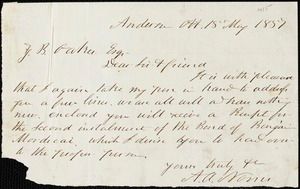 Anderson Ct. H. 15 May 1857
Z. B. Oakes Esq
Dear Sir & friend
It is with pleasure
that I again take my pen in hand to address
you a few lines, we are all well & have nothing
new, enclosed you will receive a Receipt for
the Second instalment of the Bond of Benjn
Mordecai, which I desire you to hand over
to the proper person
Yours truly &c
A. A. Norris